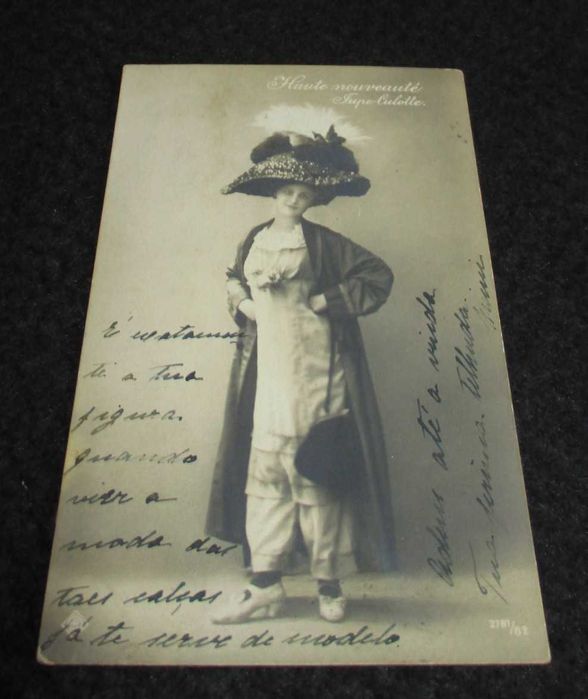 Haute nouveauté
Jupe-Culotte.
É exatamen
te a tua
figura.
quando
vier a
moda das
taes calças
já te serve de modelo.
Adeus até a vinda
Tua
2781/62